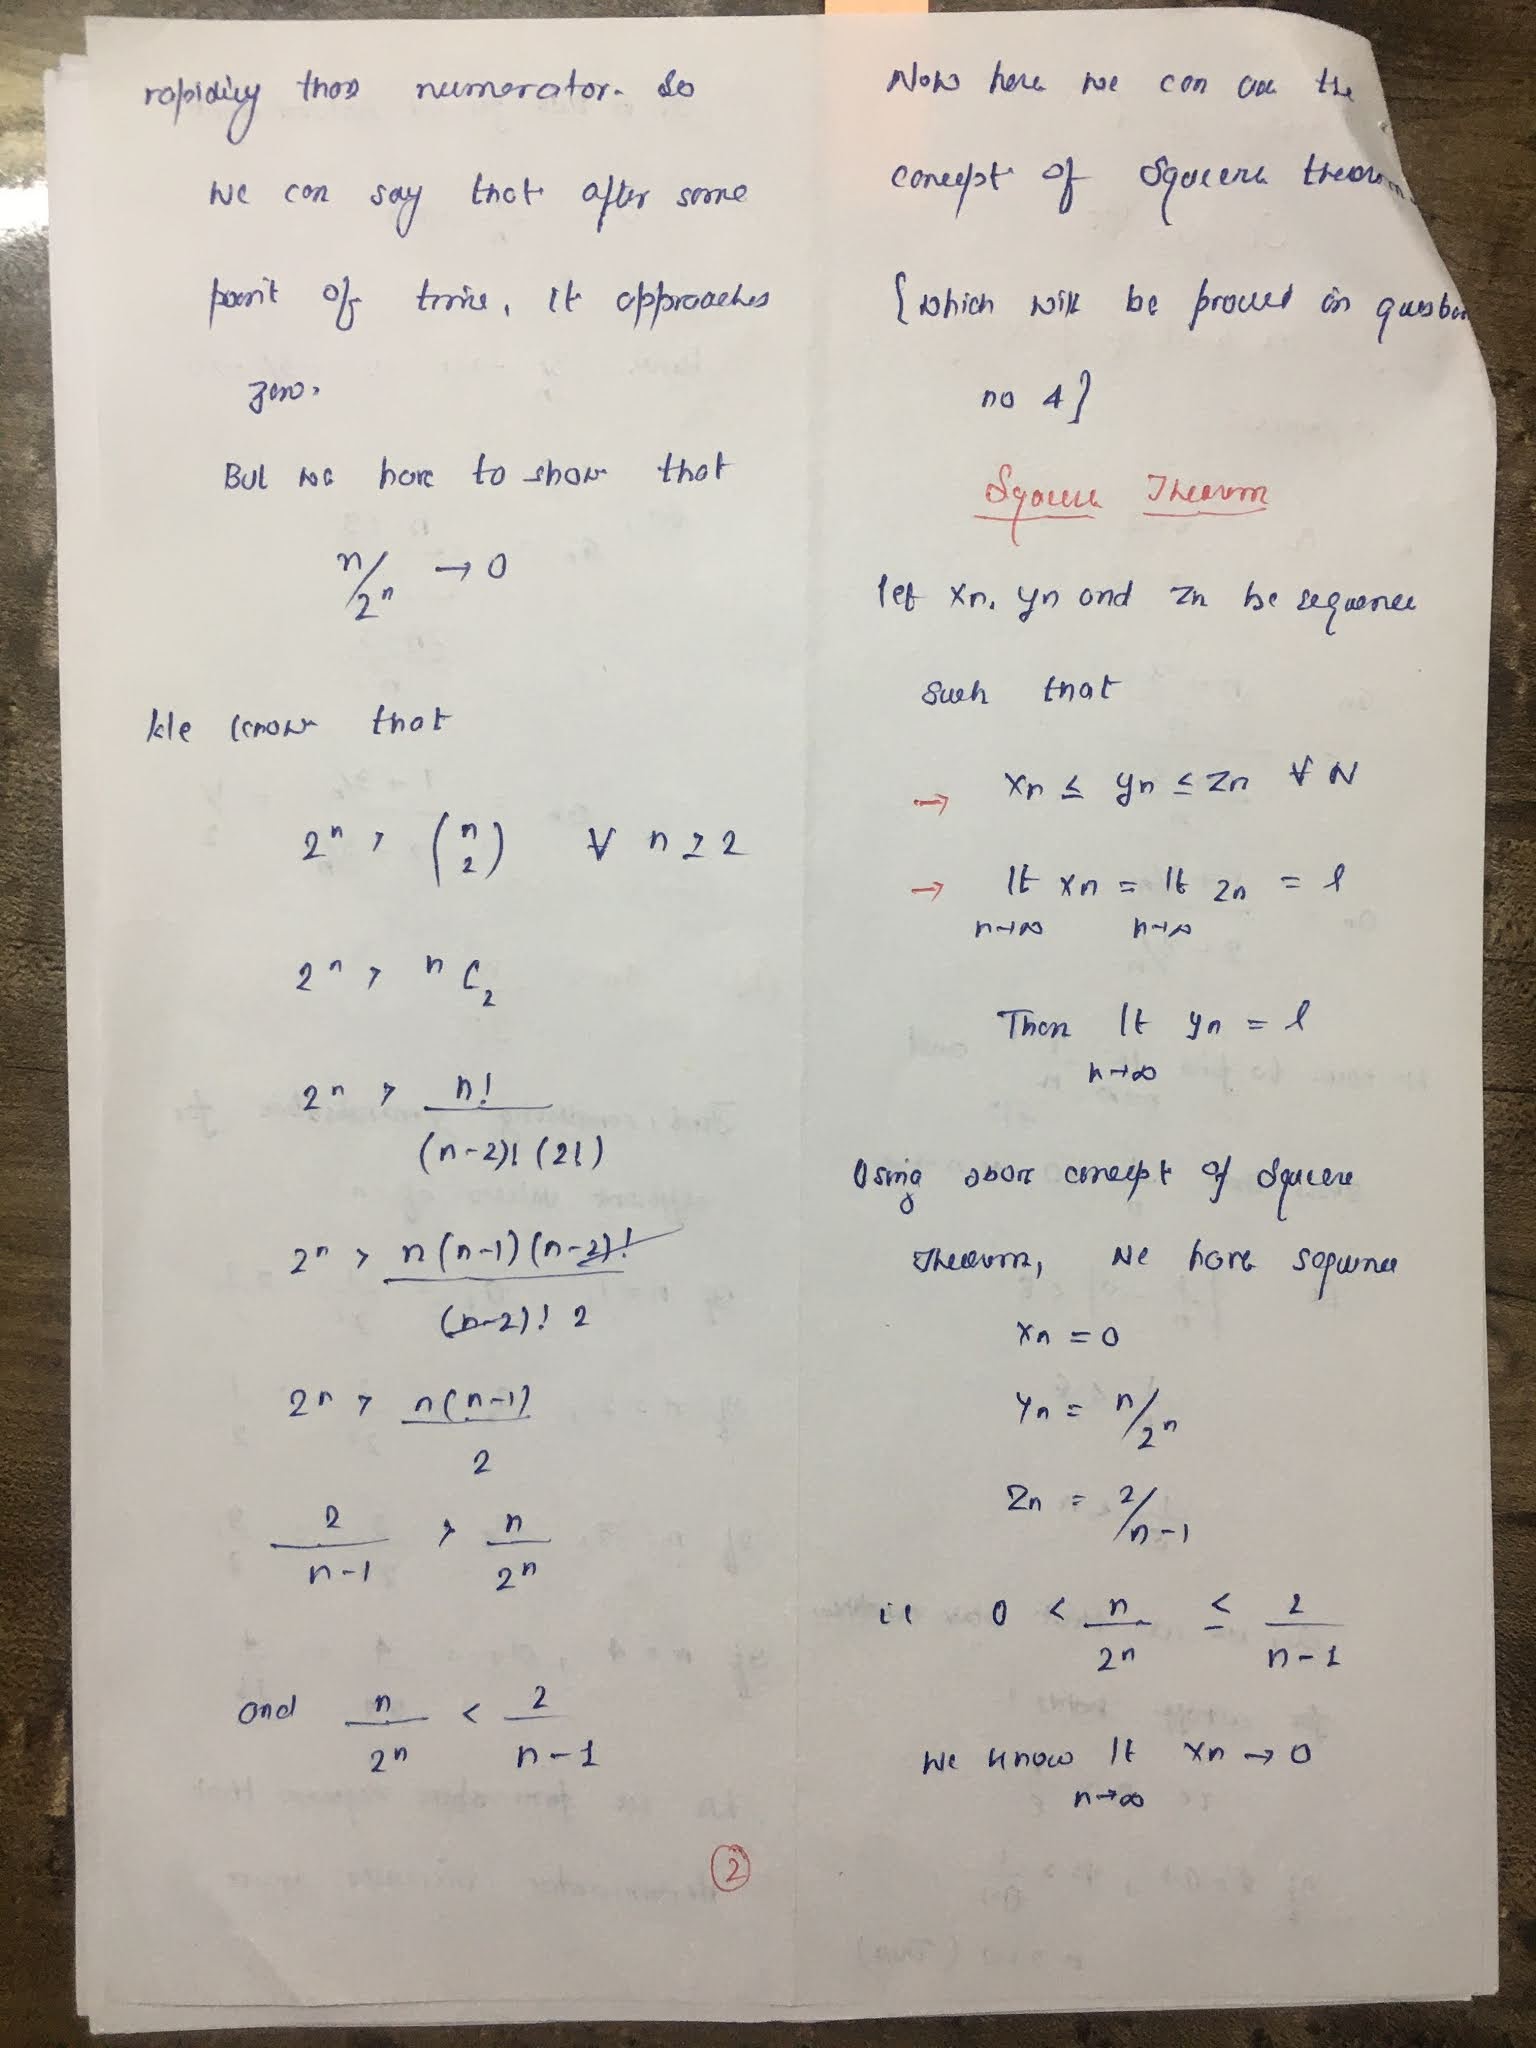 rapidily than numerator. So
we can say that after some
point of time, it approaches
zero.
But we have to show that
n/2ⁿ → 0
We know that
2ⁿ > (n 2) ∀ n ≥ 2
2ⁿ > ⁿC₂
2ⁿ > n! / (n-2)! (2!)
2ⁿ > n(n-1)(n-2)! / (n-2)! 2
2ⁿ > n(n-1) / 2
2/(n-1) > n/2ⁿ
and n/2ⁿ < 2/(n-1)
Now here we can use the
concept of Squeeze theorem
{which will be proved in question
no 4}
Squeeze Theorem
let xn, yn and zn be sequence
such that
→ xn ≤ yn ≤ zn ∀ N
→ lt n→∞ xn = lt n→∞ zn = l
Then lt n→∞ yn = l
Using above concept of Squeeze
Theorem, we have sequence
xn = 0
yn = n/2ⁿ
zn = 2/n-1
ie 0 < n/2ⁿ ≤ 2/(n-1)
We know lt n→∞ xn → 0
2